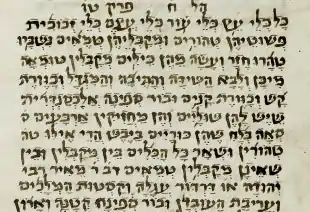 הל ח פרק טו
כל כלי עץ כלי עור כלי עצם כלי זכוכית
פשוטיהן טהורים ומקבליהן טמאים נשברו
טהרו חזר ועשה מהן כילים מקבלין טומאה
מיכן ולבא השידה והתיבה והמגדל וכוורת
קש וכוורת קנים ובור ספינה אלכסנדרית
שיש להן שוליים והן מחזיקין ארבעים ס
סאה בלח שהן כוריים ביבש הרי אילו טה
טהורין ושאר כל הכלים בין מקבלין ובין
שאינן מקבלין טמאים דב ר מאיר רבי
יהודה או דרדור עגלה וקסטות המלכים
ועריבת העובדן ובור ספינה קטנה וארון